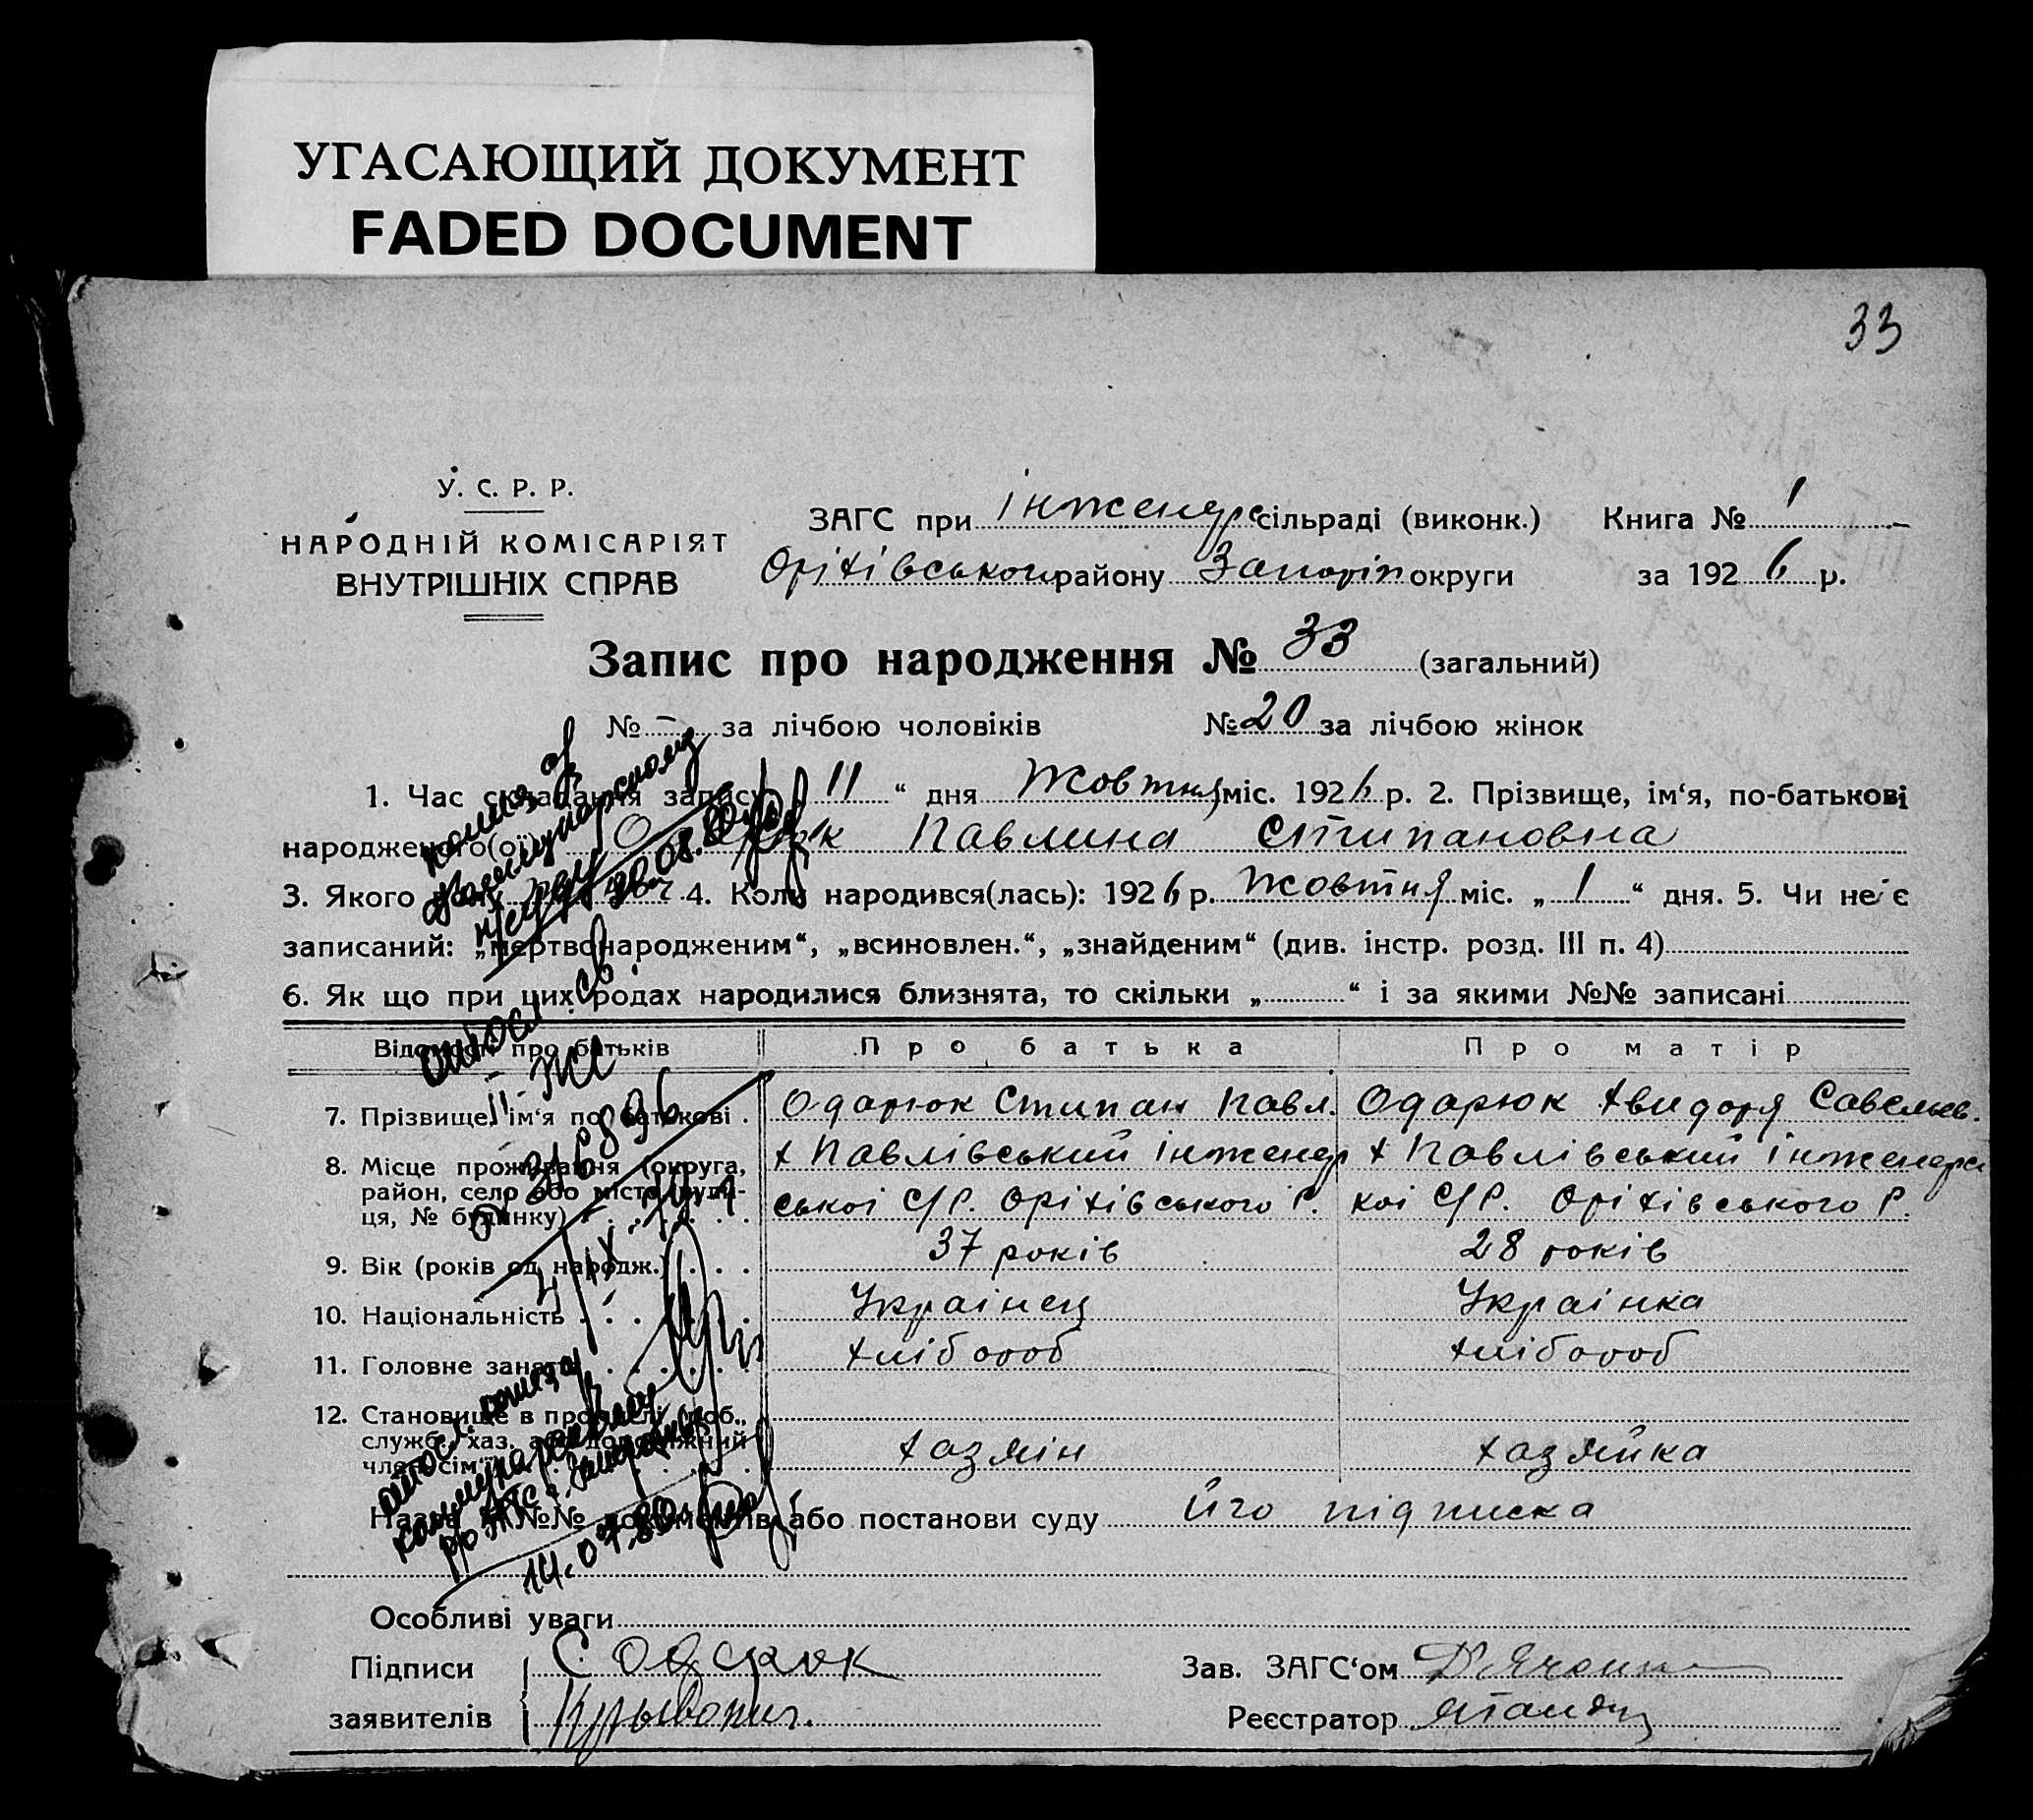 УГАСАЮЩИЙ ДОКУМЕНТ
FADED DOCUMENT
33
У. С. Р. Р.
НАРОДНІЙ КОМІСАРІЯТ
ВНУТРІШНІХ СПРАВ
ЗАГС при інженерс сільраді (виконк.) Книга № 1
Оріхівського району Запоріп округи за 1926 р.
Запис про народження № 33 (загальний)
№ – за лічбою чоловіків № 20 за лічбою жінок
1. Час складання запису „ 11 “ дня Жовтня міс. 1926 р. 2. Прізвище, ім‘я, по-батькові
народженого(ої) Одарюк Павлина Степановна
3. Якого полу 4. Коли народився(лась): 1926 р. жовтня міс. „ 1 “ дня. 5. Чи не є
записаний: „мертвонародженим“, „всиновлен.“, „знайденим“ (див. інстр. розд. III п. 4)
6. Як що при цих родах народилися близнята, то скільки „ “ і за якими №№ записані
Відомості про батьків Про батька Про матір
7. Прізвище, ім‘я по батькові . Одарюк Степан Павл. Одарюк Хвидоря Савельев.
8. Місце проживання (округа, район, село або місто, вулиця, № будинку) х Павлівський Інженер х Павлівський Інженерс
ської С/Р. Оріхівського Р. кої С/Р. Оріхівського Р.
9. Вік (років од народж.) 37 років 28 років
10. Національність Українец Українка
11. Головне заняття хлібороб хлібороб
12. Становище в промислі (роб., служб., хаз. або допоміжний член сім‘ї) хазяін хазяйка
Назва і №№ документів або постанови суду його підписка
14.07.80
Особливі уваги
Підписи С Одарюк Зав. ЗАГС‘ом
заявителів Реєстратор